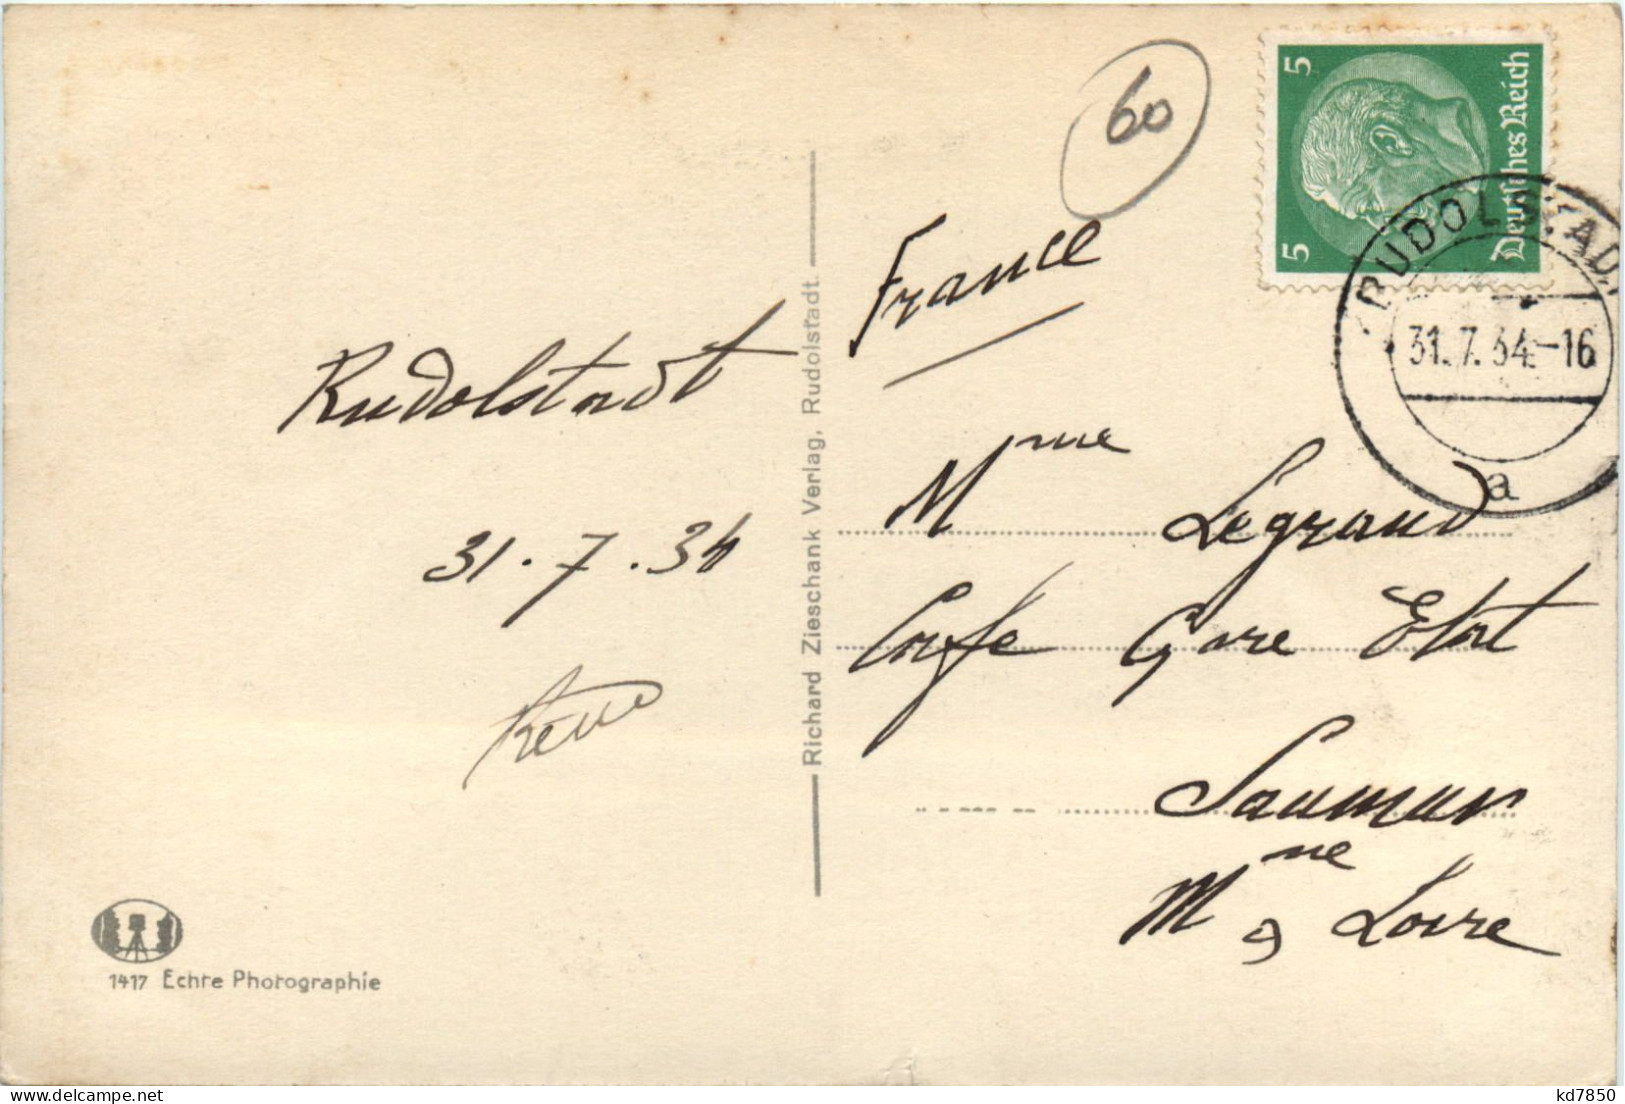 60
5
5
Deutsches Reich
RUDOLSTADT
31.7.34.-16
a
France
Rudolstadt
31.7.34
Mme Legrand
Cafe Gare Etat
Saumur
Mne & Loire
Richard Zieschank Verlag, Rudolstadt.
1417 Echte Photographie
kd7850